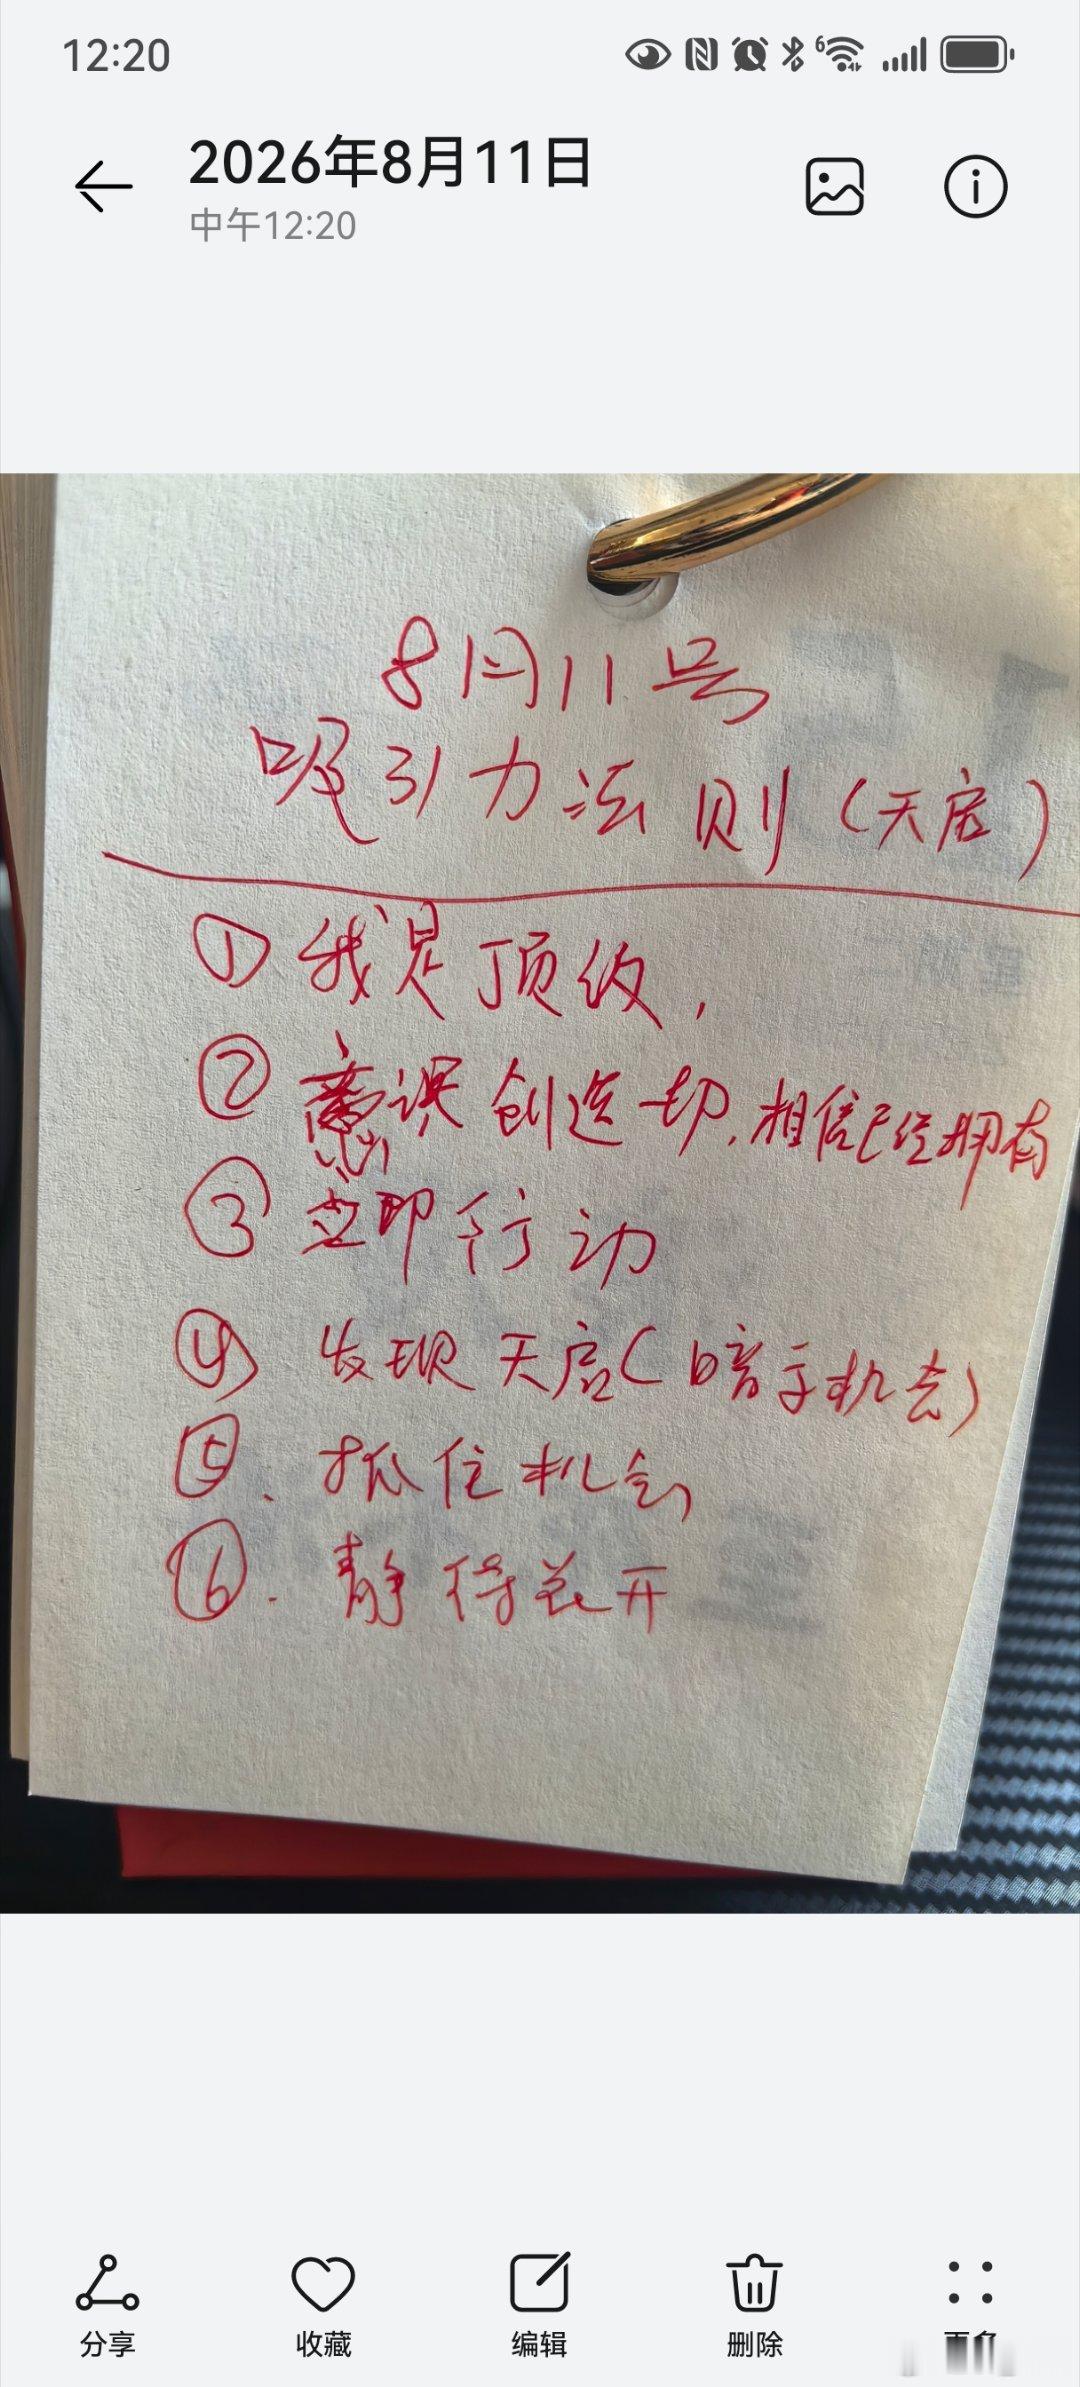 12:20
2026年8月11日
中午12:20
8月11号
吸引力法则(天启)
①我是顶级,
②意识创造一切,相信已经拥有
③立即行动
④发现天启(暗示机会)
⑤.抓住机会
⑥.静待花开
分享 收藏 编辑 删除